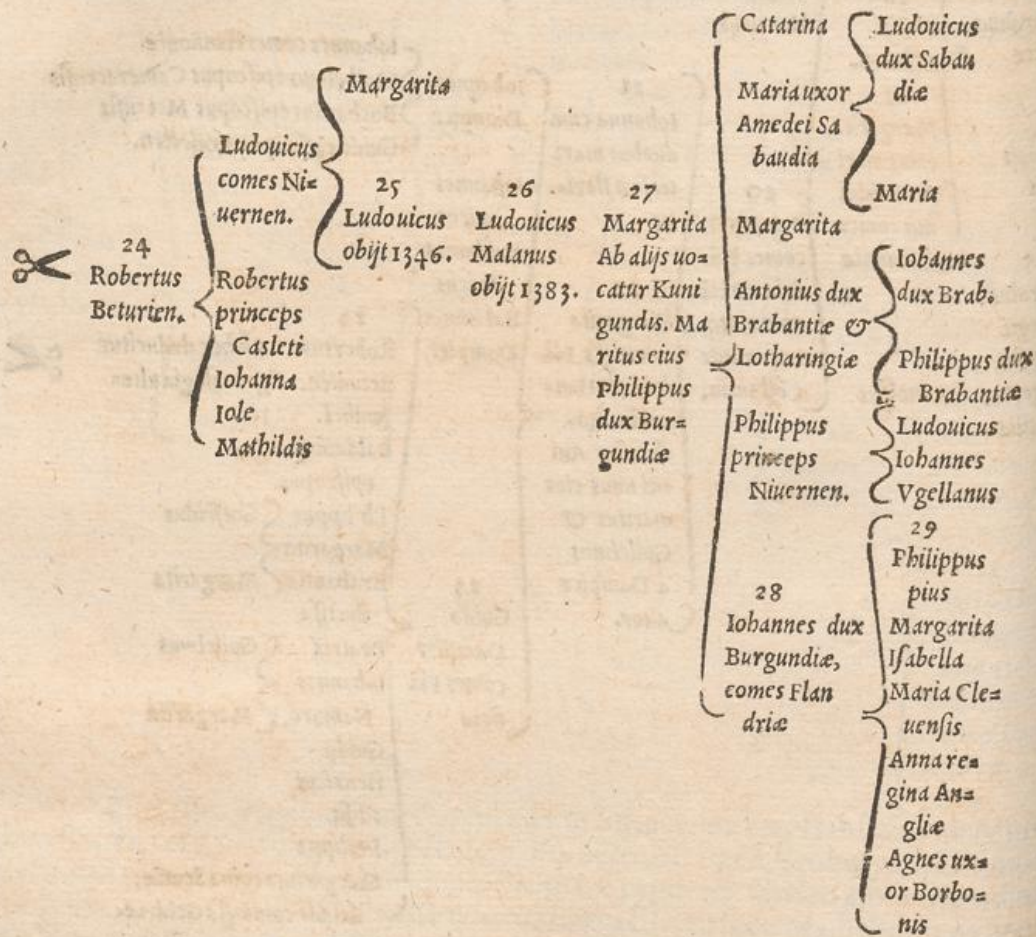 24
Robertus
Beturien.
Ludouicus
comes Ni=
uernen.
Robertus
princeps
Casleti
Iohanna
Iole
Mathildis
Margarita
25
Ludouicus
obijt 1346.
26
Ludouicus
Malanus
obijt 1383.
27
Margarita
Ab alijs uo=
catur Kuni
gundis. Ma
ritus eius
Philippus
dux Bur=
gundiæ
Catarina
Maria uxor
Amedei Sa
baudia
Margarita
Antonius dux
Brabantiæ &
Lotharingiæ
Philippus
princeps
Niuernen.
28
Iohannes dux
Burgundiæ,
comes Flan
driæ
Ludouicus
dux Sabau
diæ
Maria
Iohannes
dux Brab.
Philippus dux
Brabantiæ
Ludouicus
Iohannes
Vgellanus
29
Philippus
pius
Margarita
Isabella
Maria Cle=
uensis
Anna re=
gina An=
gliæ
Agnes ux=
or Borbo=
nis